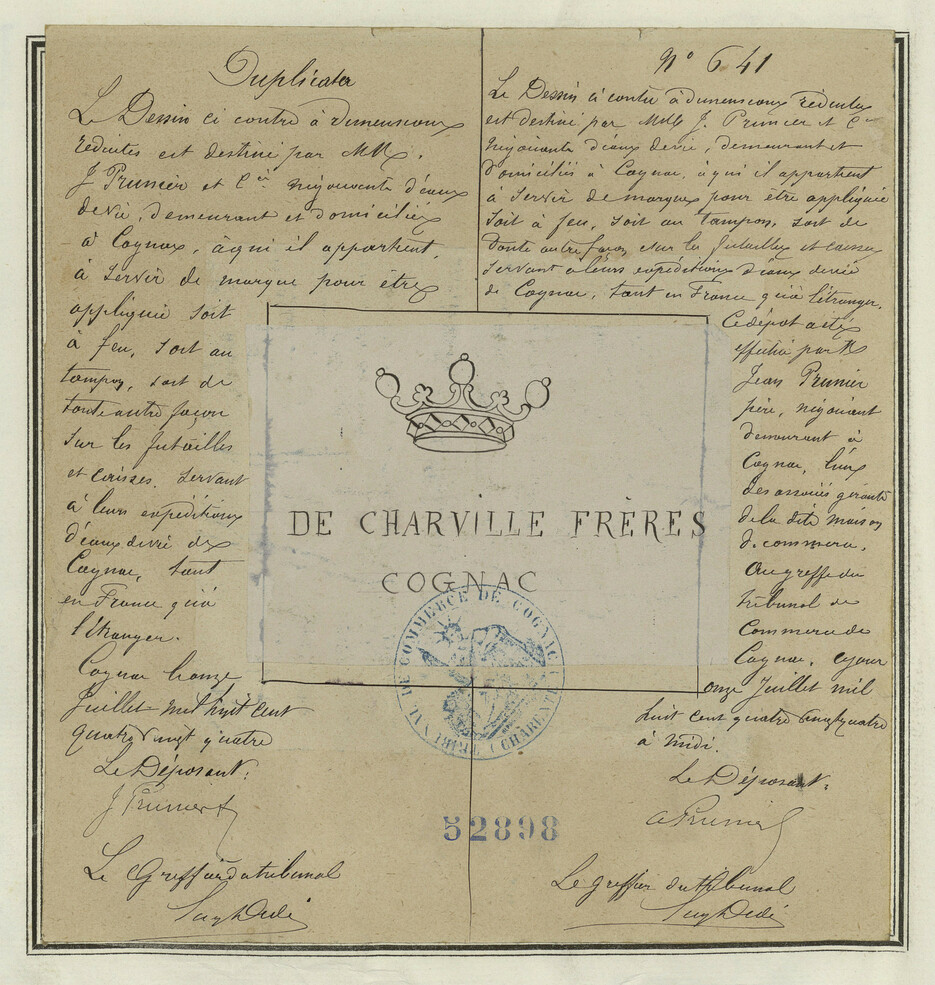 Duplicata
Le Dessin ci contre à dimensions
réduites est destiné par MM.
J Prunier et Cie négociants d'eaux
devie, demeurant et domiciliés
à Cognac, àqui il appartient,
à servir de marque pour être
appliquée soit
à feu, soit au
tampon, soit de
toute autre façon
sur les futailles
et caisses, servant
à leurs expéditions
d'eaux devie de
Cognac, tant
en France qu'à
l'étranger.
Cognac le onze
Juillet mil huit cent
quatre vingt quatre
Le Déposant:
J Prunier
Le Greffier du tribunal
N° 641
Le Dessin ci contre à dimensions réduites
est destiné par MM J. Prunier et Cie
négociants d'eaux devie, demeurant et
domiciliés à Cognac, àqui il appartient
à servir de marque pour être appliquée
soit à feu, soit au tampon, soit de
toute autre façon, sur les futailles et caisses
servant à leurs expéditions d'eaux devie
de Cognac, tant en France qu'à l'étranger.
Ce dépôt a été
effectué par M
Jean Prunier
père, négociant
demeurant à
Cognac, l'un
des associés gérants
de la dite maison
de commerce,
Au greffe du
tribunal de
Commerce de
Cognac, ce jour
onze Juillet mil
huit cent quatre vingt quatre
à midi.
Le Déposant:
Prunier
Le greffier du tribunal
DE CHARVILLE FRÈRES
COGNAC
TRIBUNAL DE COMMERCE DE COGNAC
(CHARENTE)
52898